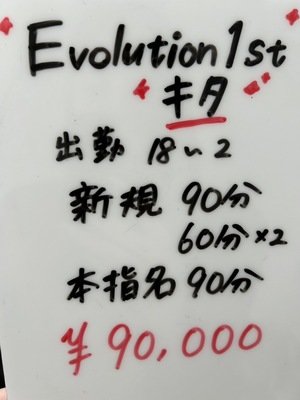 Evolution1st
キタ
出勤 18〜2
新規 90分
60分×2
本指名90分
¥90,000